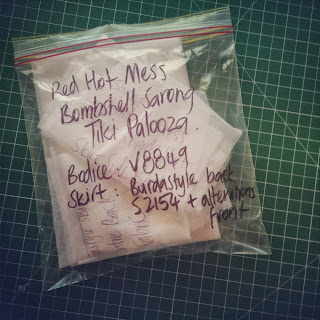 Red Hot Mess
Bombshell Sarong
Tiki Palooza.
Bodice: V8849
Skirt: Burdastyle back
S2154 + alterations
front